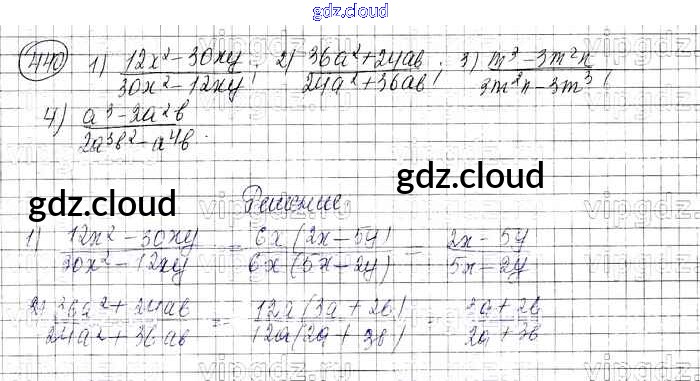 gdz.cloud
440 1) (12x² - 30xy)/(30x² - 12xy); 2) (36a² + 24ab)/(24a² + 36ab); 3) (m³ - 3m²n)/(3m²n - 3m³);
4) (a³ - 2a²b)/(2a³b² - a⁴b).
gdz.cloud
gdz.cloud
Решение
1) (12x² - 30xy)/(30x² - 12xy) = 6x(2x - 5y)/6x(5x - 2y) = (2x - 5y)/(5x - 2y)
2) (36a² + 24ab)/(24a² + 36ab) = 12a(3a + 2b)/12a(2a + 3b) = (3a + 2b)/(2a + 3b)